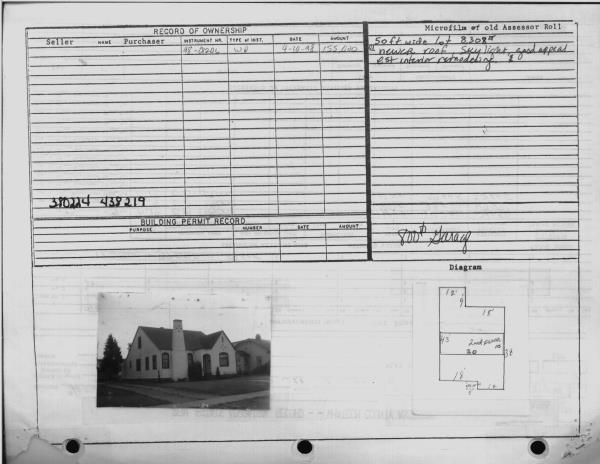 RECORD OF OWNERSHIP
Seller NAME Purchaser INSTRUMENT NR. TYPE of INST. DATE AMOUNT
WD 4-10-98 155,000
380224 438219
BUILDING PERMIT RECORD
PURPOSE NUMBER DATE AMOUNT
Microfilm of old Assessor Roll
50ft wide lot 8308
newer roof, skylight, good appeal
est interior remodeling
800 Garage
Diagram
12
9
18
43
2nd
30
34
18